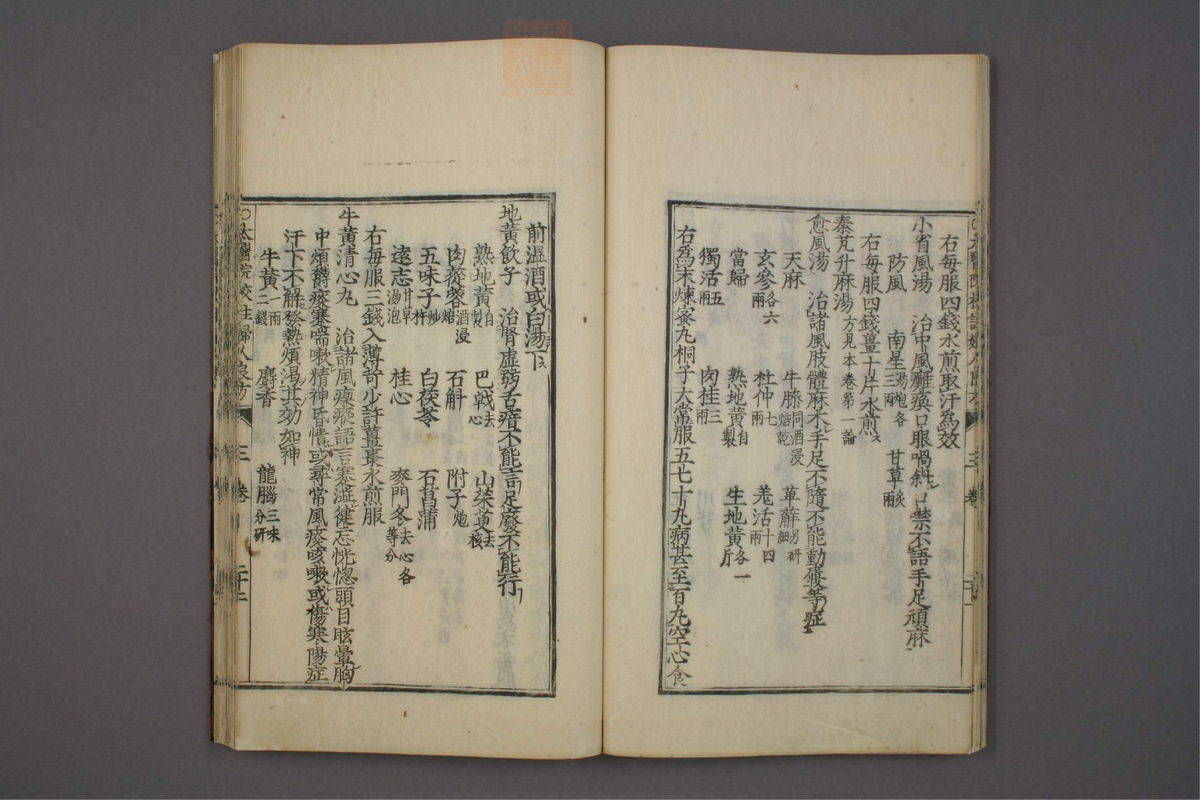 右每服四錢水煎取汗爲效
小省風湯 治中風癱瘓口眼喎斜口噤不語手足頑麻
防風 南星湯炮各三兩 甘草炙兩
右每服四錢薑十片水煎
秦艽升麻湯方見本卷第一論
愈風湯 治諸風肢體麻木手足不隨不能動履等症
天麻 牛膝同酒浸焙乾 萆薢另研細
玄參各六兩 杜仲七兩 羗活十四兩
當歸 熟地黃自製 生地黃各一斤
獨活五兩 肉桂三兩
右爲末煉蜜丸桐子大常服五七十丸病甚至百丸空心食
前溫酒或白湯下
地黃飲子 治腎虛弱舌瘖不能言足廢不能行
熟地黃自製 巴戟去心 山茱萸去核
肉蓯蓉酒浸焙 石斛 附子炮
五味子杵炒 白茯苓 石菖蒲
遠志甘草湯泡 桂心 麥門冬去心各等分
右每服三錢入薄荷少許薑棗水煎服
牛黃清心丸 治諸風瘓瘲語言蹇澁健忘恍惚頭目眩暈胸
中煩鬱痰塞喘嗽精神昏憒或尋常風痰咳嗽或傷寒陽症
汗下不解發熱煩渴其効如神
牛黃一兩二錢 麝香 龍腦三味分研
太醫院校註婦人良方 三卷 二十二